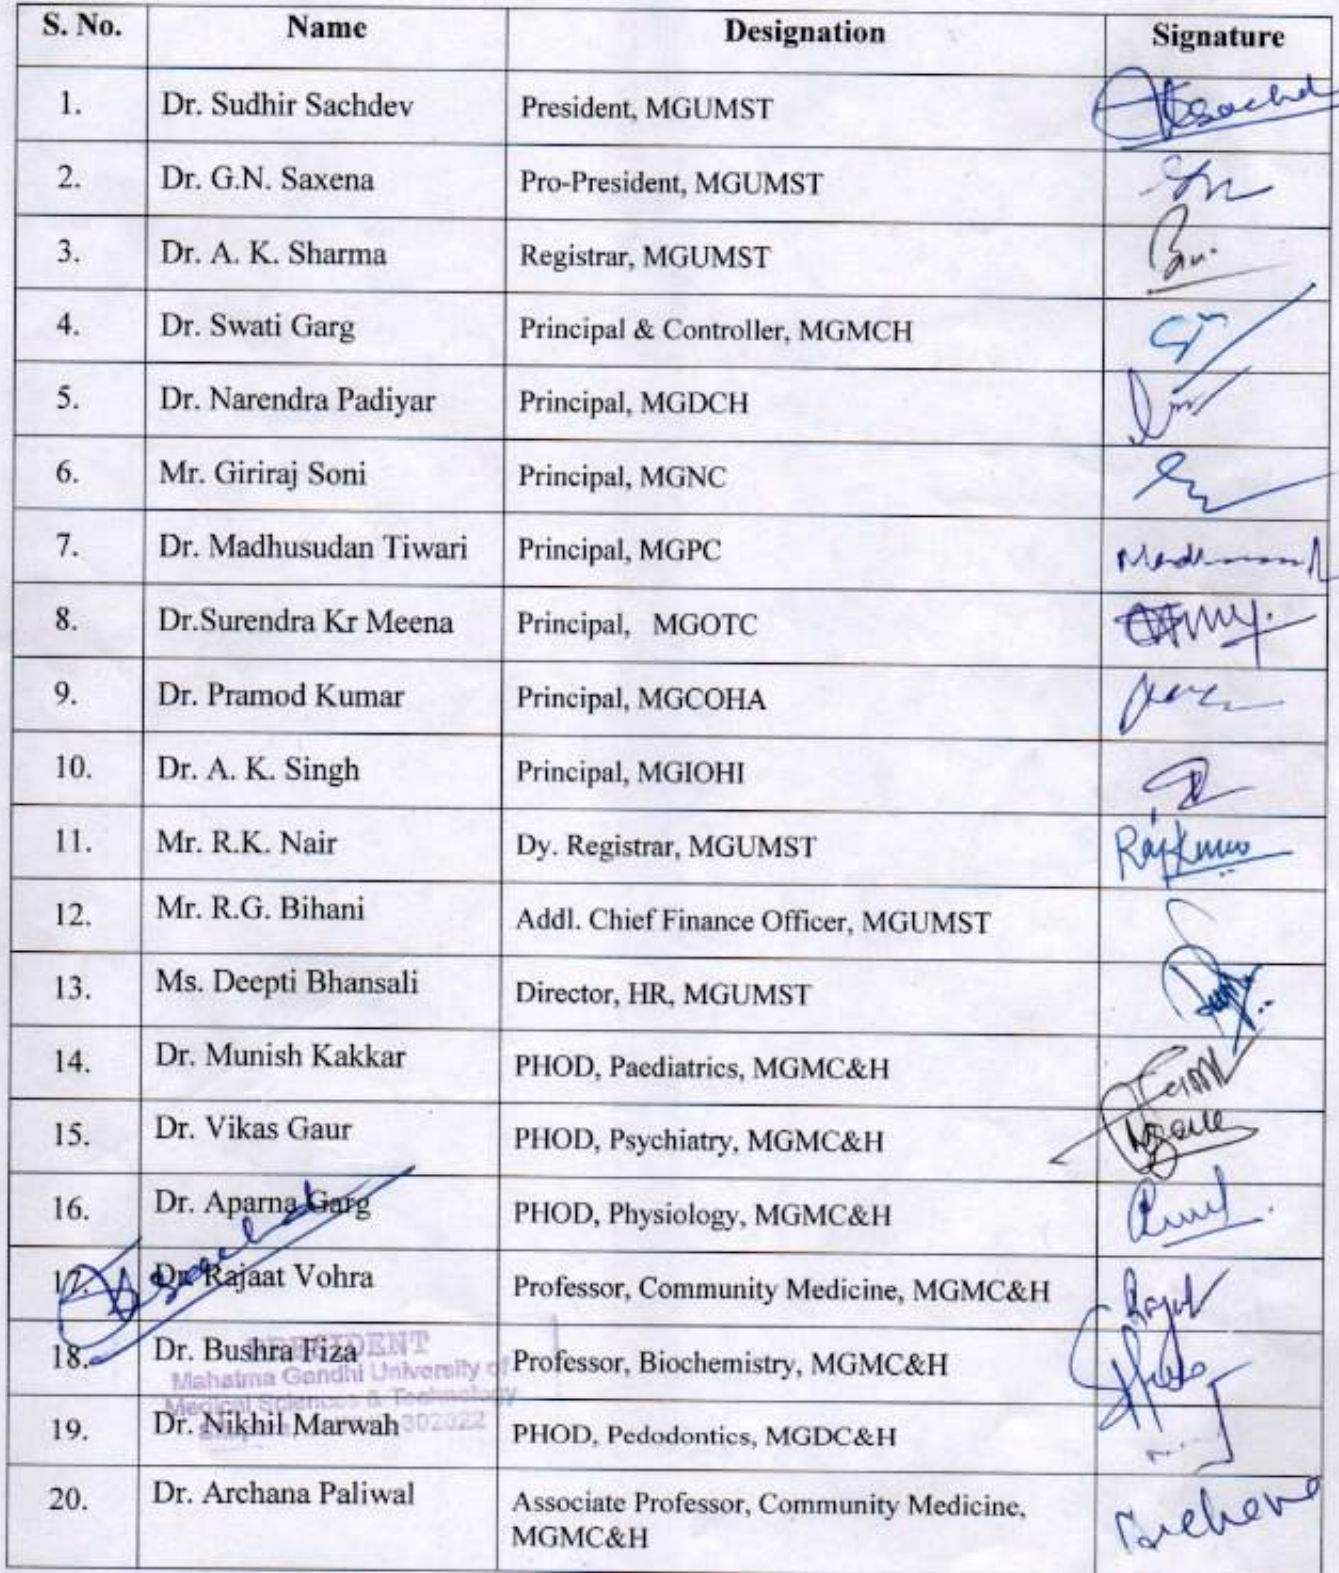 S. No. Name Designation Signature
1. Dr. Sudhir Sachdev President, MGUMST
2. Dr. G.N. Saxena Pro-President, MGUMST
3. Dr. A. K. Sharma Registrar, MGUMST
4. Dr. Swati Garg Principal & Controller, MGMCH
5. Dr. Narendra Padiyar Principal, MGDCH
6. Mr. Giriraj Soni Principal, MGNC
7. Dr. Madhusudan Tiwari Principal, MGPC
8. Dr.Surendra Kr Meena Principal, MGOTC
9. Dr. Pramod Kumar Principal, MGCOHA
10. Dr. A. K. Singh Principal, MGIOHI
11. Mr. R.K. Nair Dy. Registrar, MGUMST
12. Mr. R.G. Bihani Addl. Chief Finance Officer, MGUMST
13. Ms. Deepti Bhansali Director, HR, MGUMST
14. Dr. Munish Kakkar PHOD, Paediatrics, MGMC&H
15. Dr. Vikas Gaur PHOD, Psychiatry, MGMC&H
16. Dr. Aparna Garg PHOD, Physiology, MGMC&H
17. Dr. Rajaat Vohra Professor, Community Medicine, MGMC&H
PRESIDENT
18. Dr. Bushra Fiza Professor, Biochemistry, MGMC&H
Mahatma Gandhi University of
Medical Sciences & Technology
19. Dr. Nikhil Marwah PHOD, Pedodontics, MGDC&H
302022
20. Dr. Archana Paliwal Associate Professor, Community Medicine,
MGMC&H